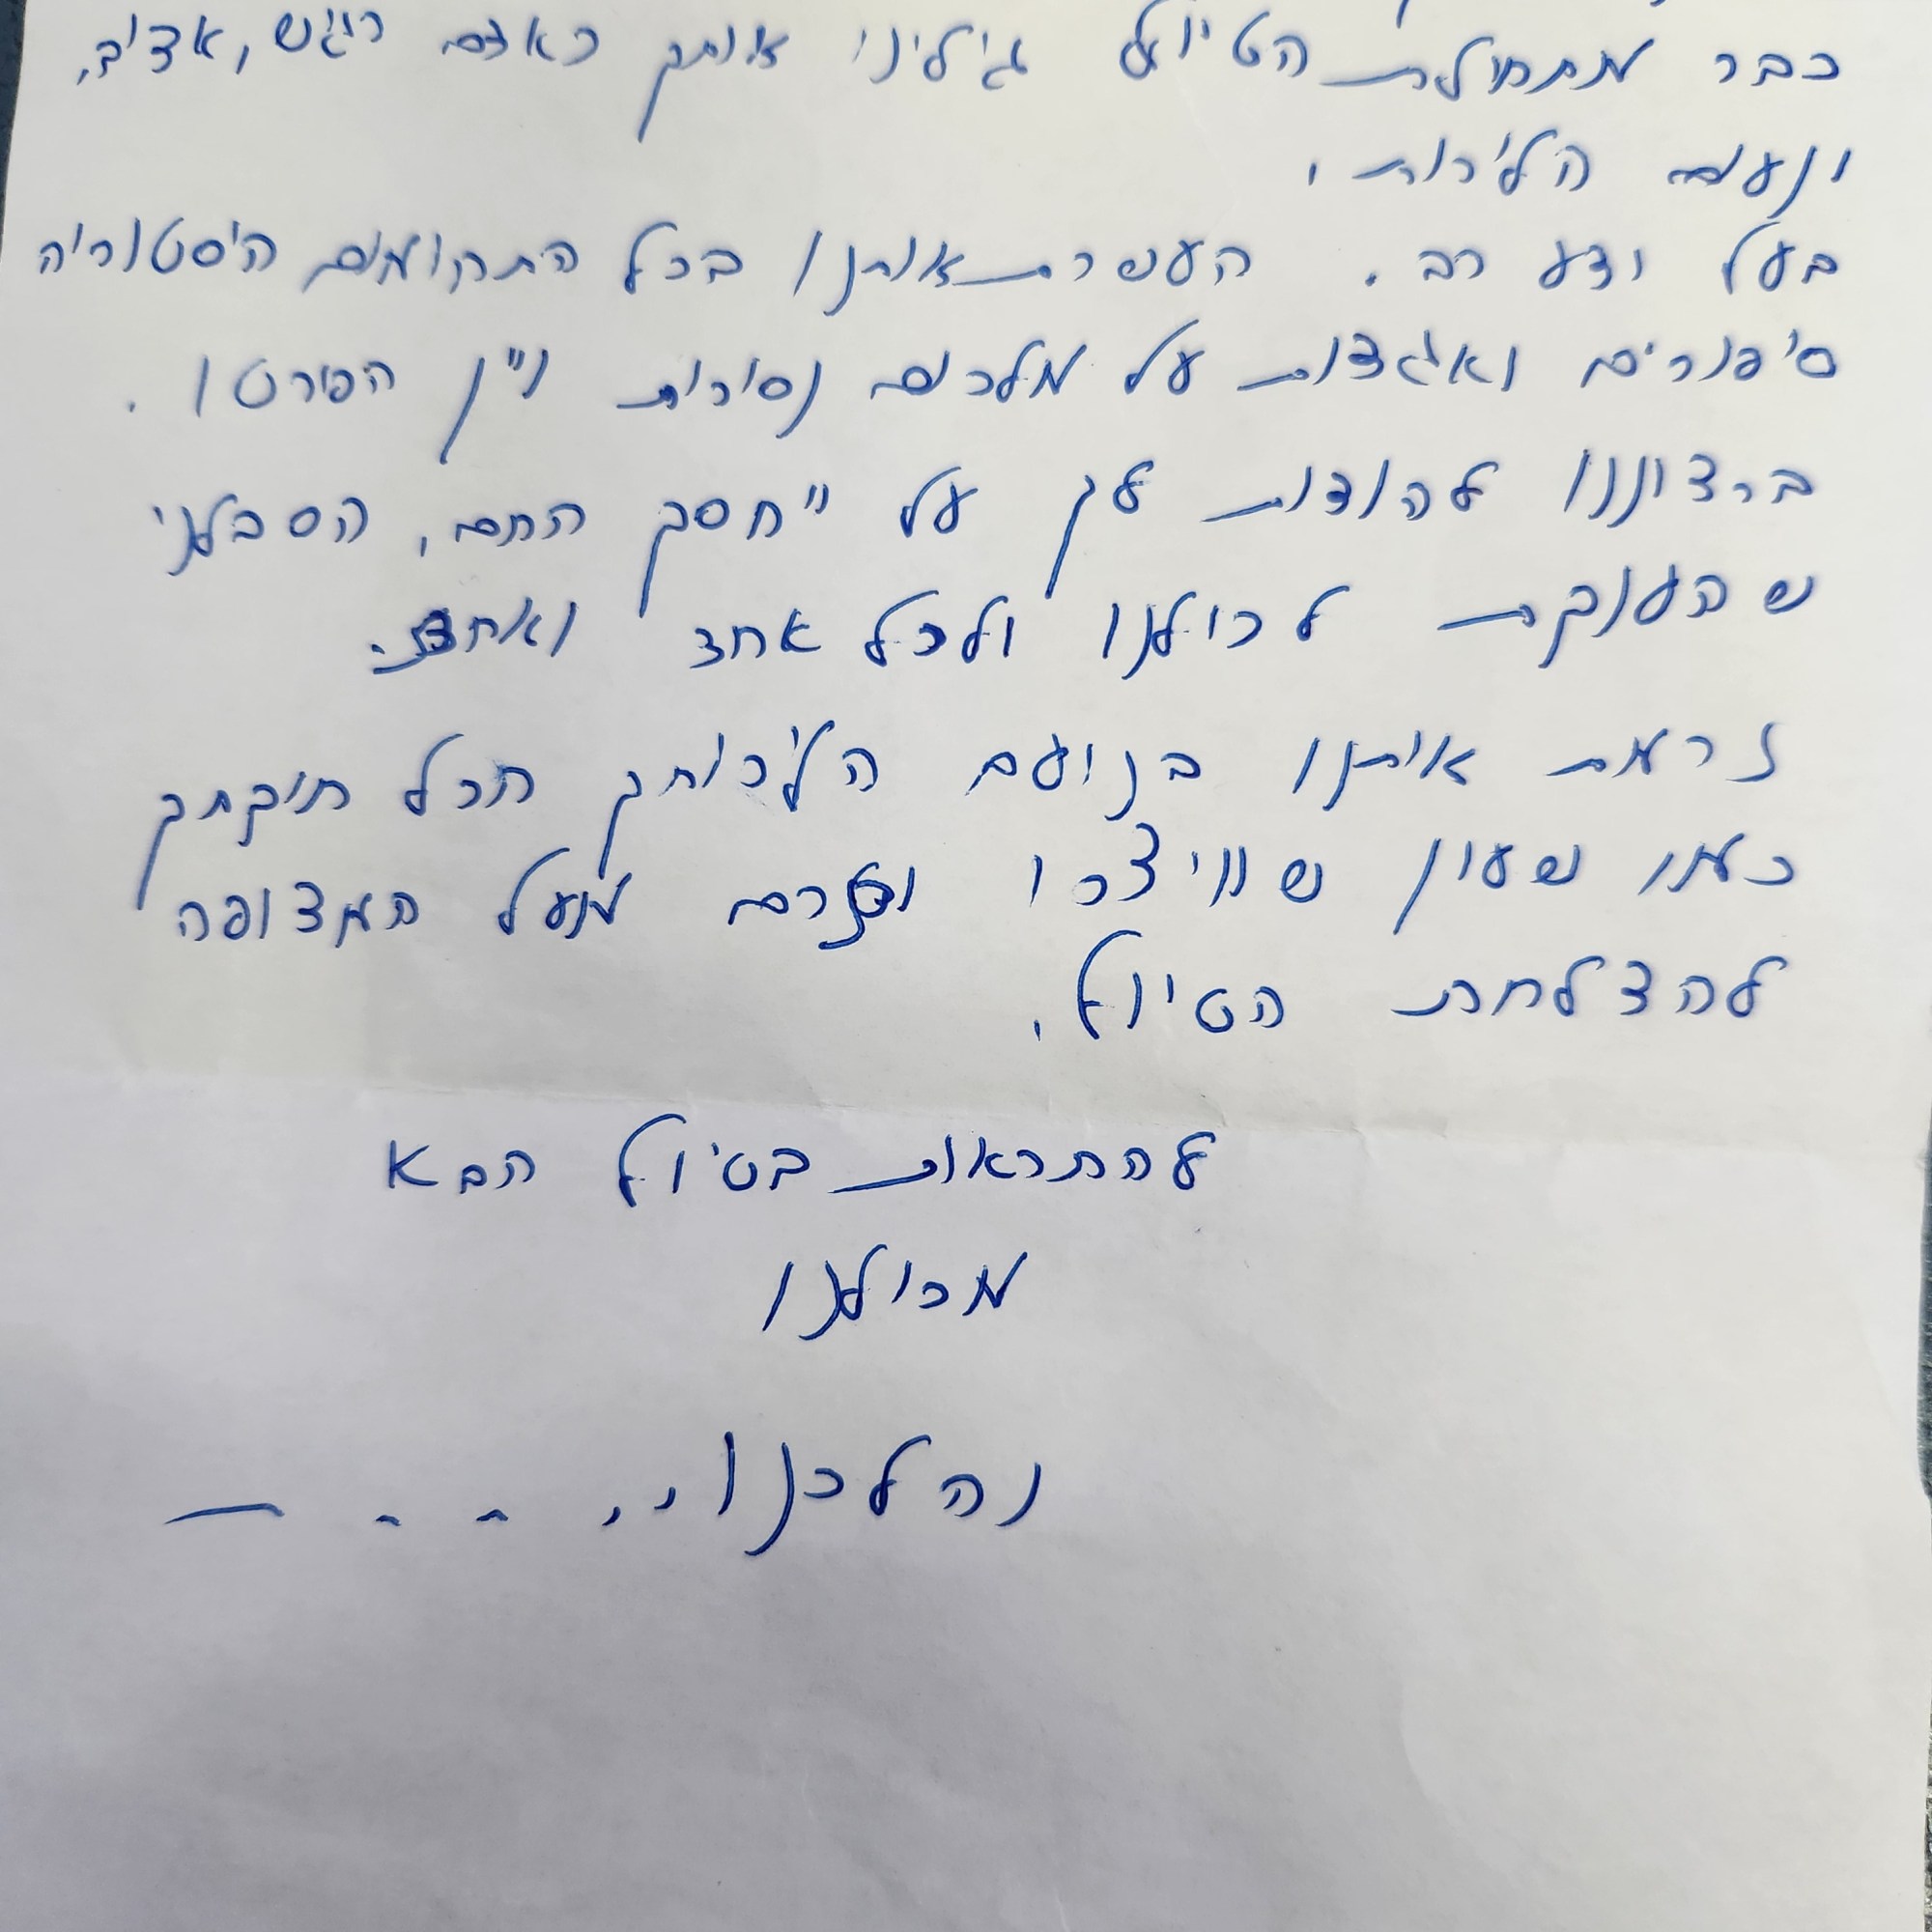 כבר מתחילת הטיול גילינו אותך כאדם רגיש, אדיב,
ונעים הליכות.
בעל ידע רב. העשרת אותנו בכל התחומים היסטוריה
סיפורים ואגדות על מלכים נסיכות ויין הפורטו.
ברצוננו להודות לך על יחסך החם, הסבלני
שהענקת לכולנו ולכל אחד ואחת.
אותנו בנועם הליכותך הכל תיקתק
כמו שעון שוויצרו וגרם מעל המצופה
להצלחת הטיול.
להתראות בטיול הבא
מכולנו
והלכנו...